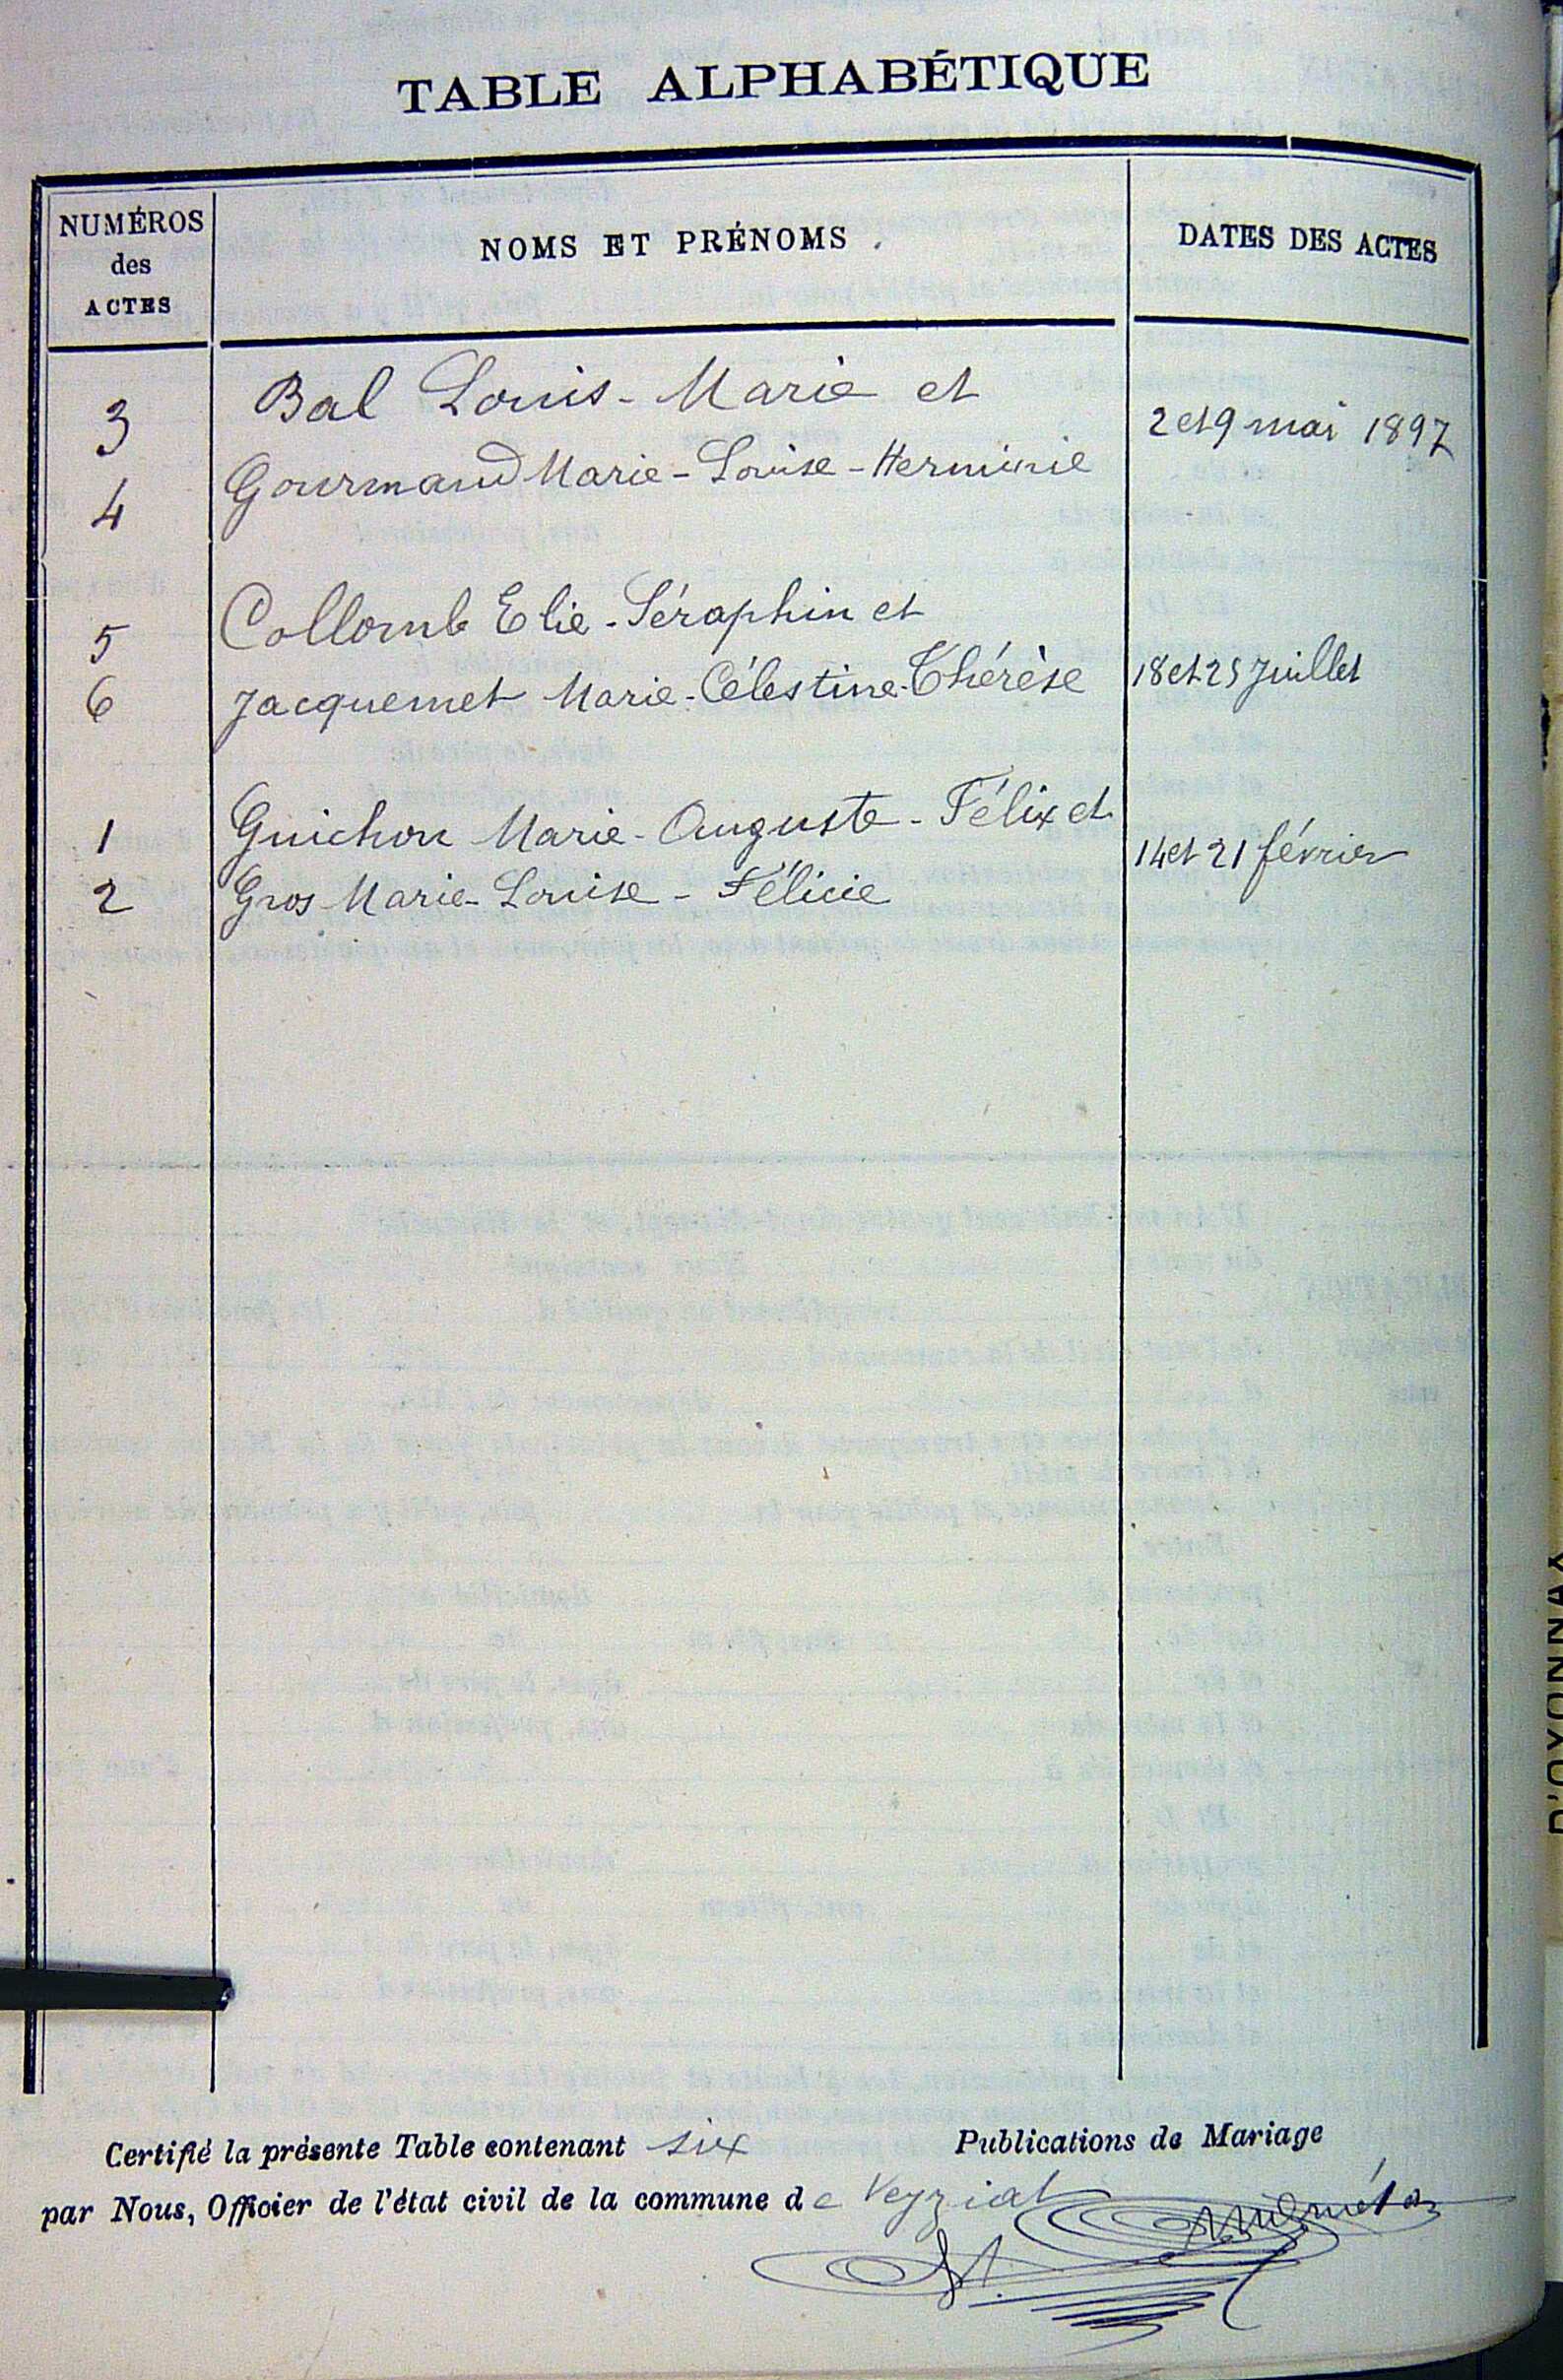 TABLE ALPHABÉTIQUE
NUMÉROS
des
ACTES
NOMS ET PRÉNOMS
DATES DES ACTES
3 Bal Louis-Marie et
2 et 9 mai 1897
4 Gourmand Marie-Louise-Herminie
5 Collomb Elie-Séraphin et
6 Jacquemet Marie-Célestine-Thérèse 18 et 25 Juillet
1 Guichon Marie-Auguste-Félix et
14 et 21 février
2 Gros Marie-Louise-Félicie
Certifié la présente Table contenant six Publications de Mariage
par Nous, Officier de l'état civil de la commune de Veyziat
D'OYONNAX